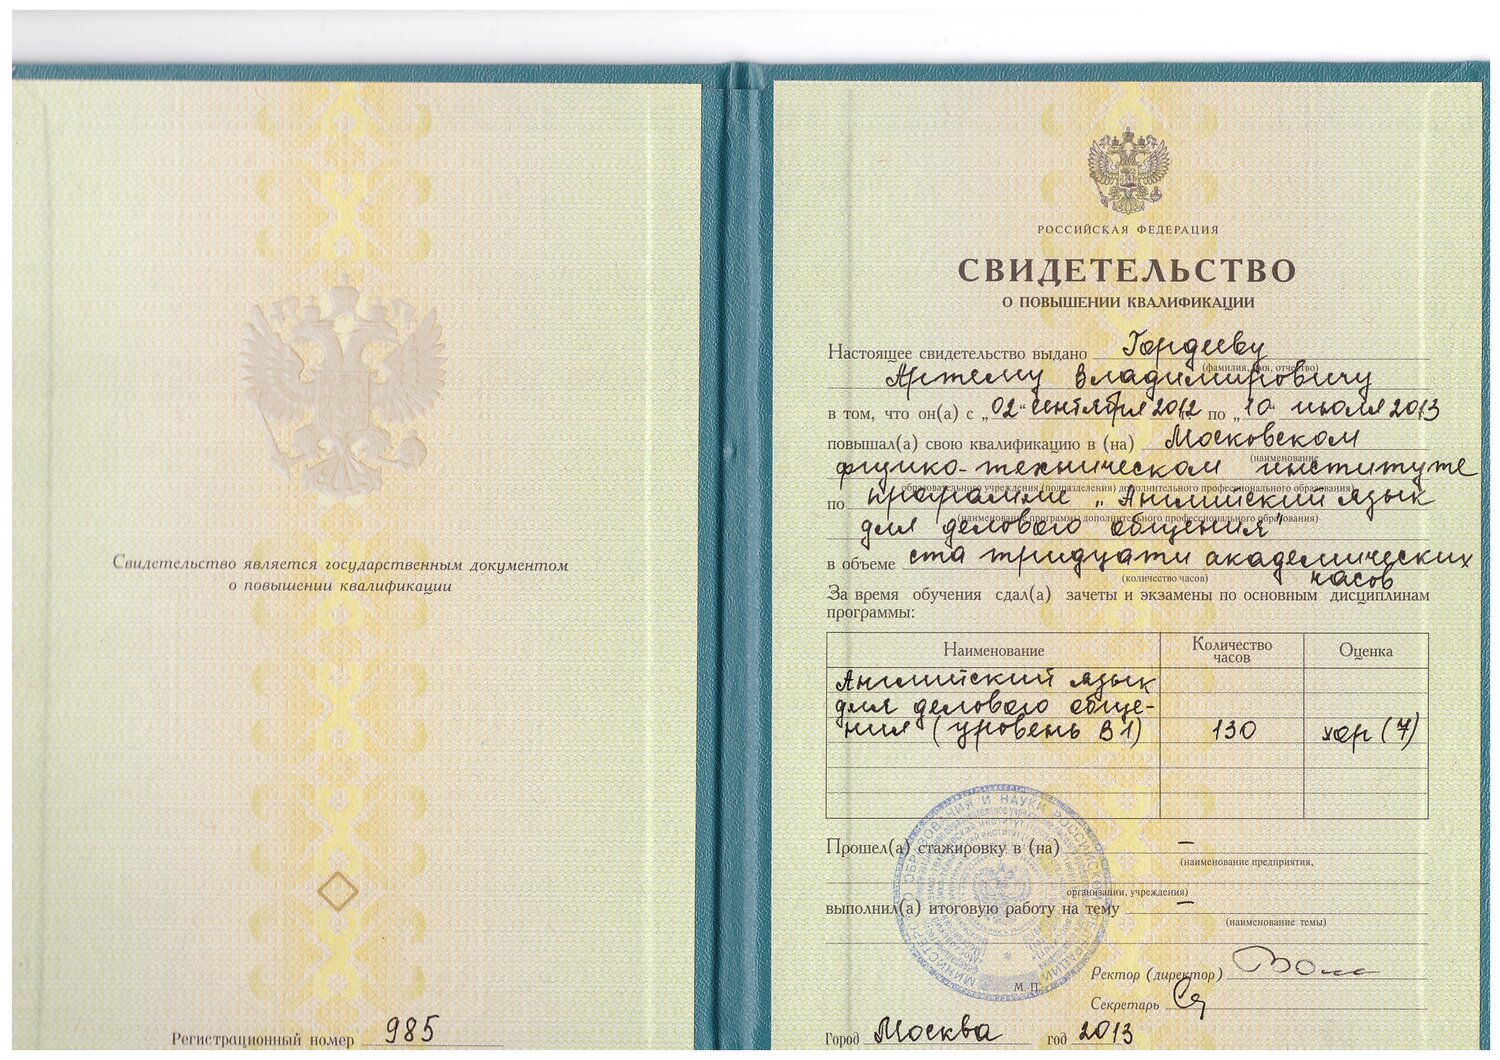 Свидетельство является государственным документом
о повышении квалификации
Регистрационный номер 985
РОССИЙСКАЯ ФЕДЕРАЦИЯ
СВИДЕТЕЛЬСТВО
О ПОВЫШЕНИИ КВАЛИФИКАЦИИ
Настоящее свидетельство выдано Гордееву
(фамилия, имя, отчество)
Артему Владимировичу
в том, что он(а) с „02“ сентября 2012 г. по „10“ июля 2013
повышал(а) свою квалификацию в (на) Московском
(наименование
физико-техническом институте
образовательного учреждения (подразделения) дополнительного профессионального образования)
по программе „Английский язык
(наименование программы дополнительного профессионального образования)
для делового общения“
в объеме ста тридцати академических
(количество часов)
часов
За время обучения сдал(а) зачеты и экзамены по основным дисциплинам
программы:
Наименование Количество часов Оценка
Английский язык
для делового обще-
ния (уровень В1) 130 хор (7)
Прошел(а) стажировку в (на) –
(наименование предприятия,
организации, учреждения)
выполнил(а) итоговую работу на тему –
(наименование темы)
МИНИСТЕРСТВО ОБРАЗОВАНИЯ И НАУКИ РОССИЙСКОЙ ФЕДЕРАЦИИ
М. П.
Ректор (директор)
Секретарь
Город Москва год 2013